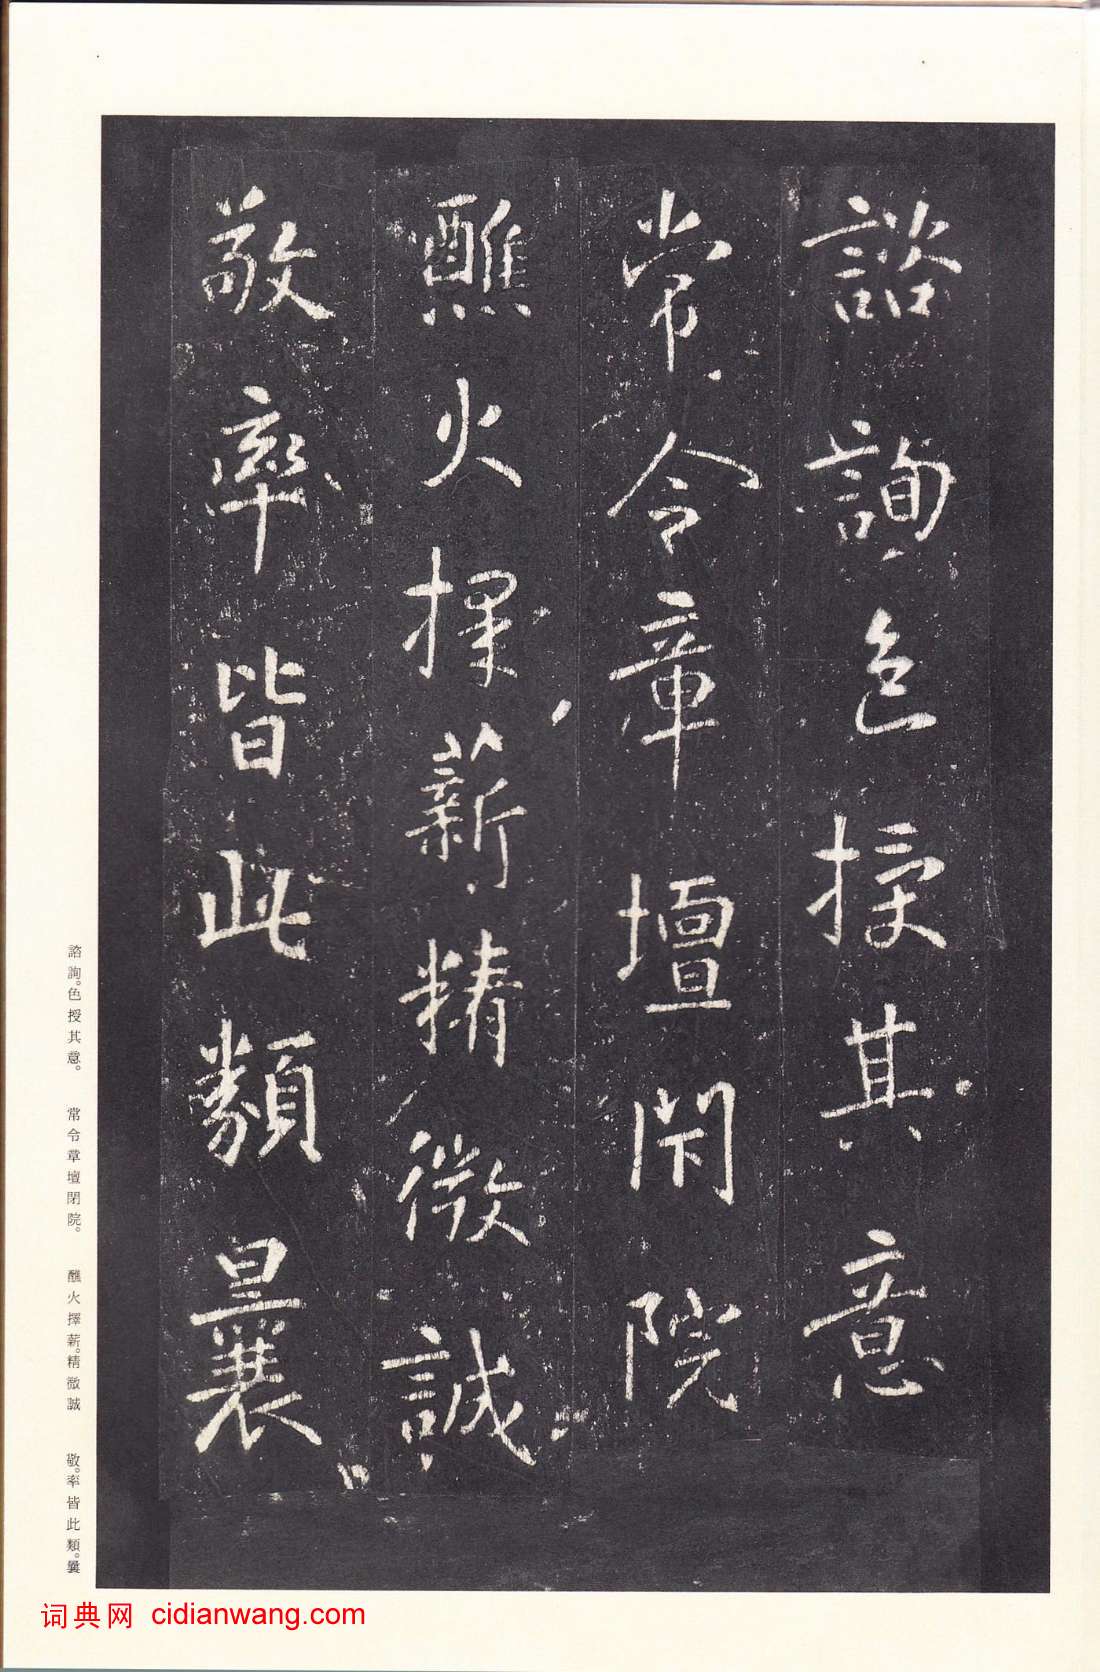 諮詢色授其意
常令章壇閇院
醮火擇薪精微誠
敬率皆此類曩
諮詢。色授其意。 常令章壇閉院。 醮火擇薪。精微誠 敬。率皆此類。曩
词典网 cidianwang.com